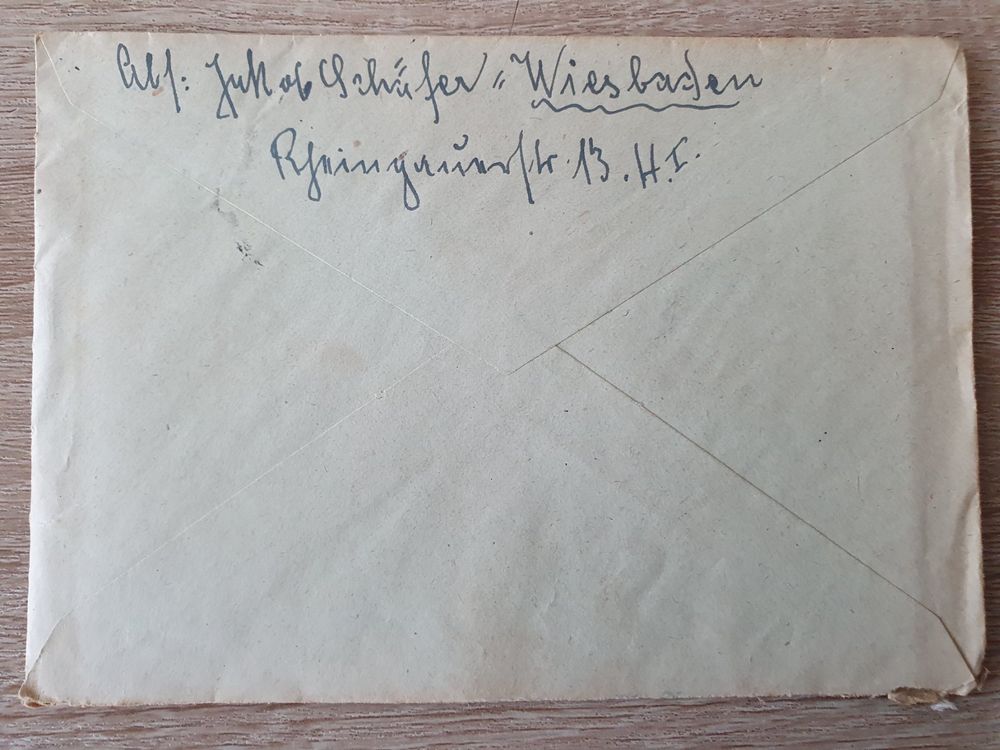 Abs: Jakob Schäfer, Wiesbaden
Rheingauerstr. 13. H.I.